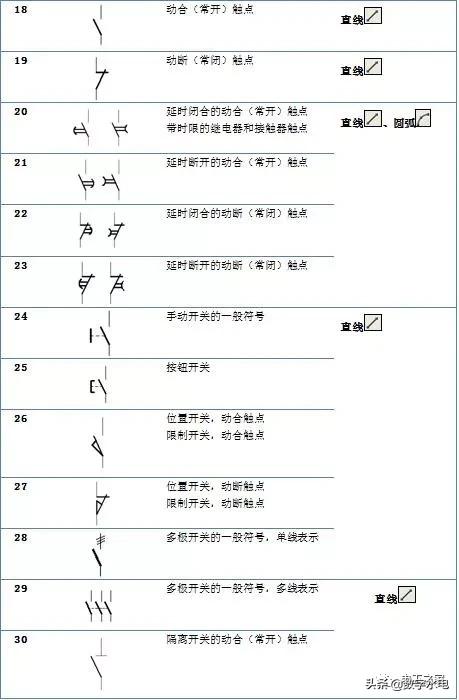 18 动合（常开）触点 直线
19 动断（常闭）触点 直线
20 延时闭合的动合（常开）触点
带时限的继电器和接触器触点 直线、圆弧
21 延时断开的动合（常开）触点
22 延时闭合的动断（常闭）触点
23 延时断开的动断（常闭）触点
24 手动开关的一般符号 直线
25 按钮开关
26 位置开关，动合触点
限制开关，动合触点
27 位置开关，动断触点
限制开关，动断触点
28 多极开关的一般符号，单线表示
29 多极开关的一般符号，多线表示 直线
30 隔离开关的动合（常开）触点
头条@数字水电